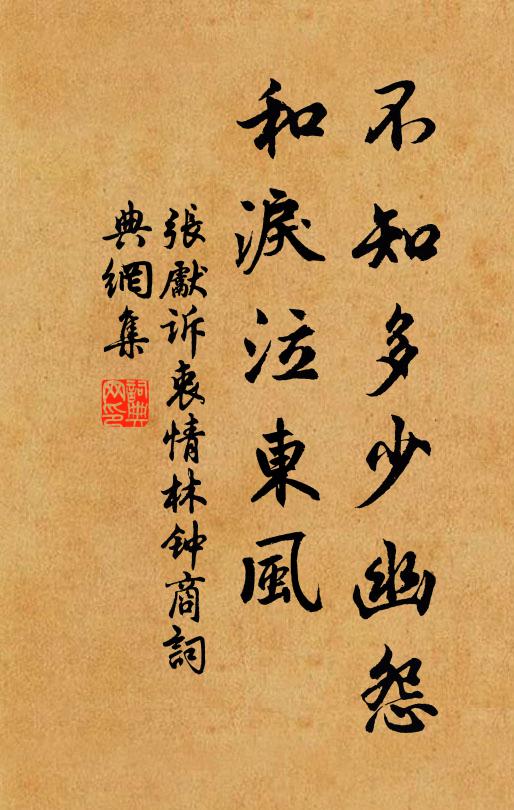 不知多少幽怨
和淚泣東風
張獻訴衷情林钟商詞
典網集
詞典
网印